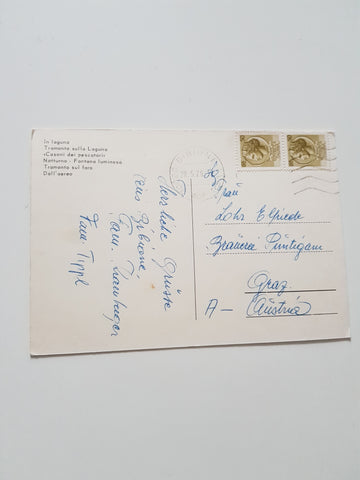 In laguna
Tramonto sulla Laguna
«Casoni dei pescatori»
Notturno - Fontana luminosa
Tramonto sul faro
Dall'aereo
Herzliche Grüsse
aus Bibione,
Fam.
Frau Tippl
Frau
Lohr Elfriede
Brauerei Puntigam
Graz
A - Austria